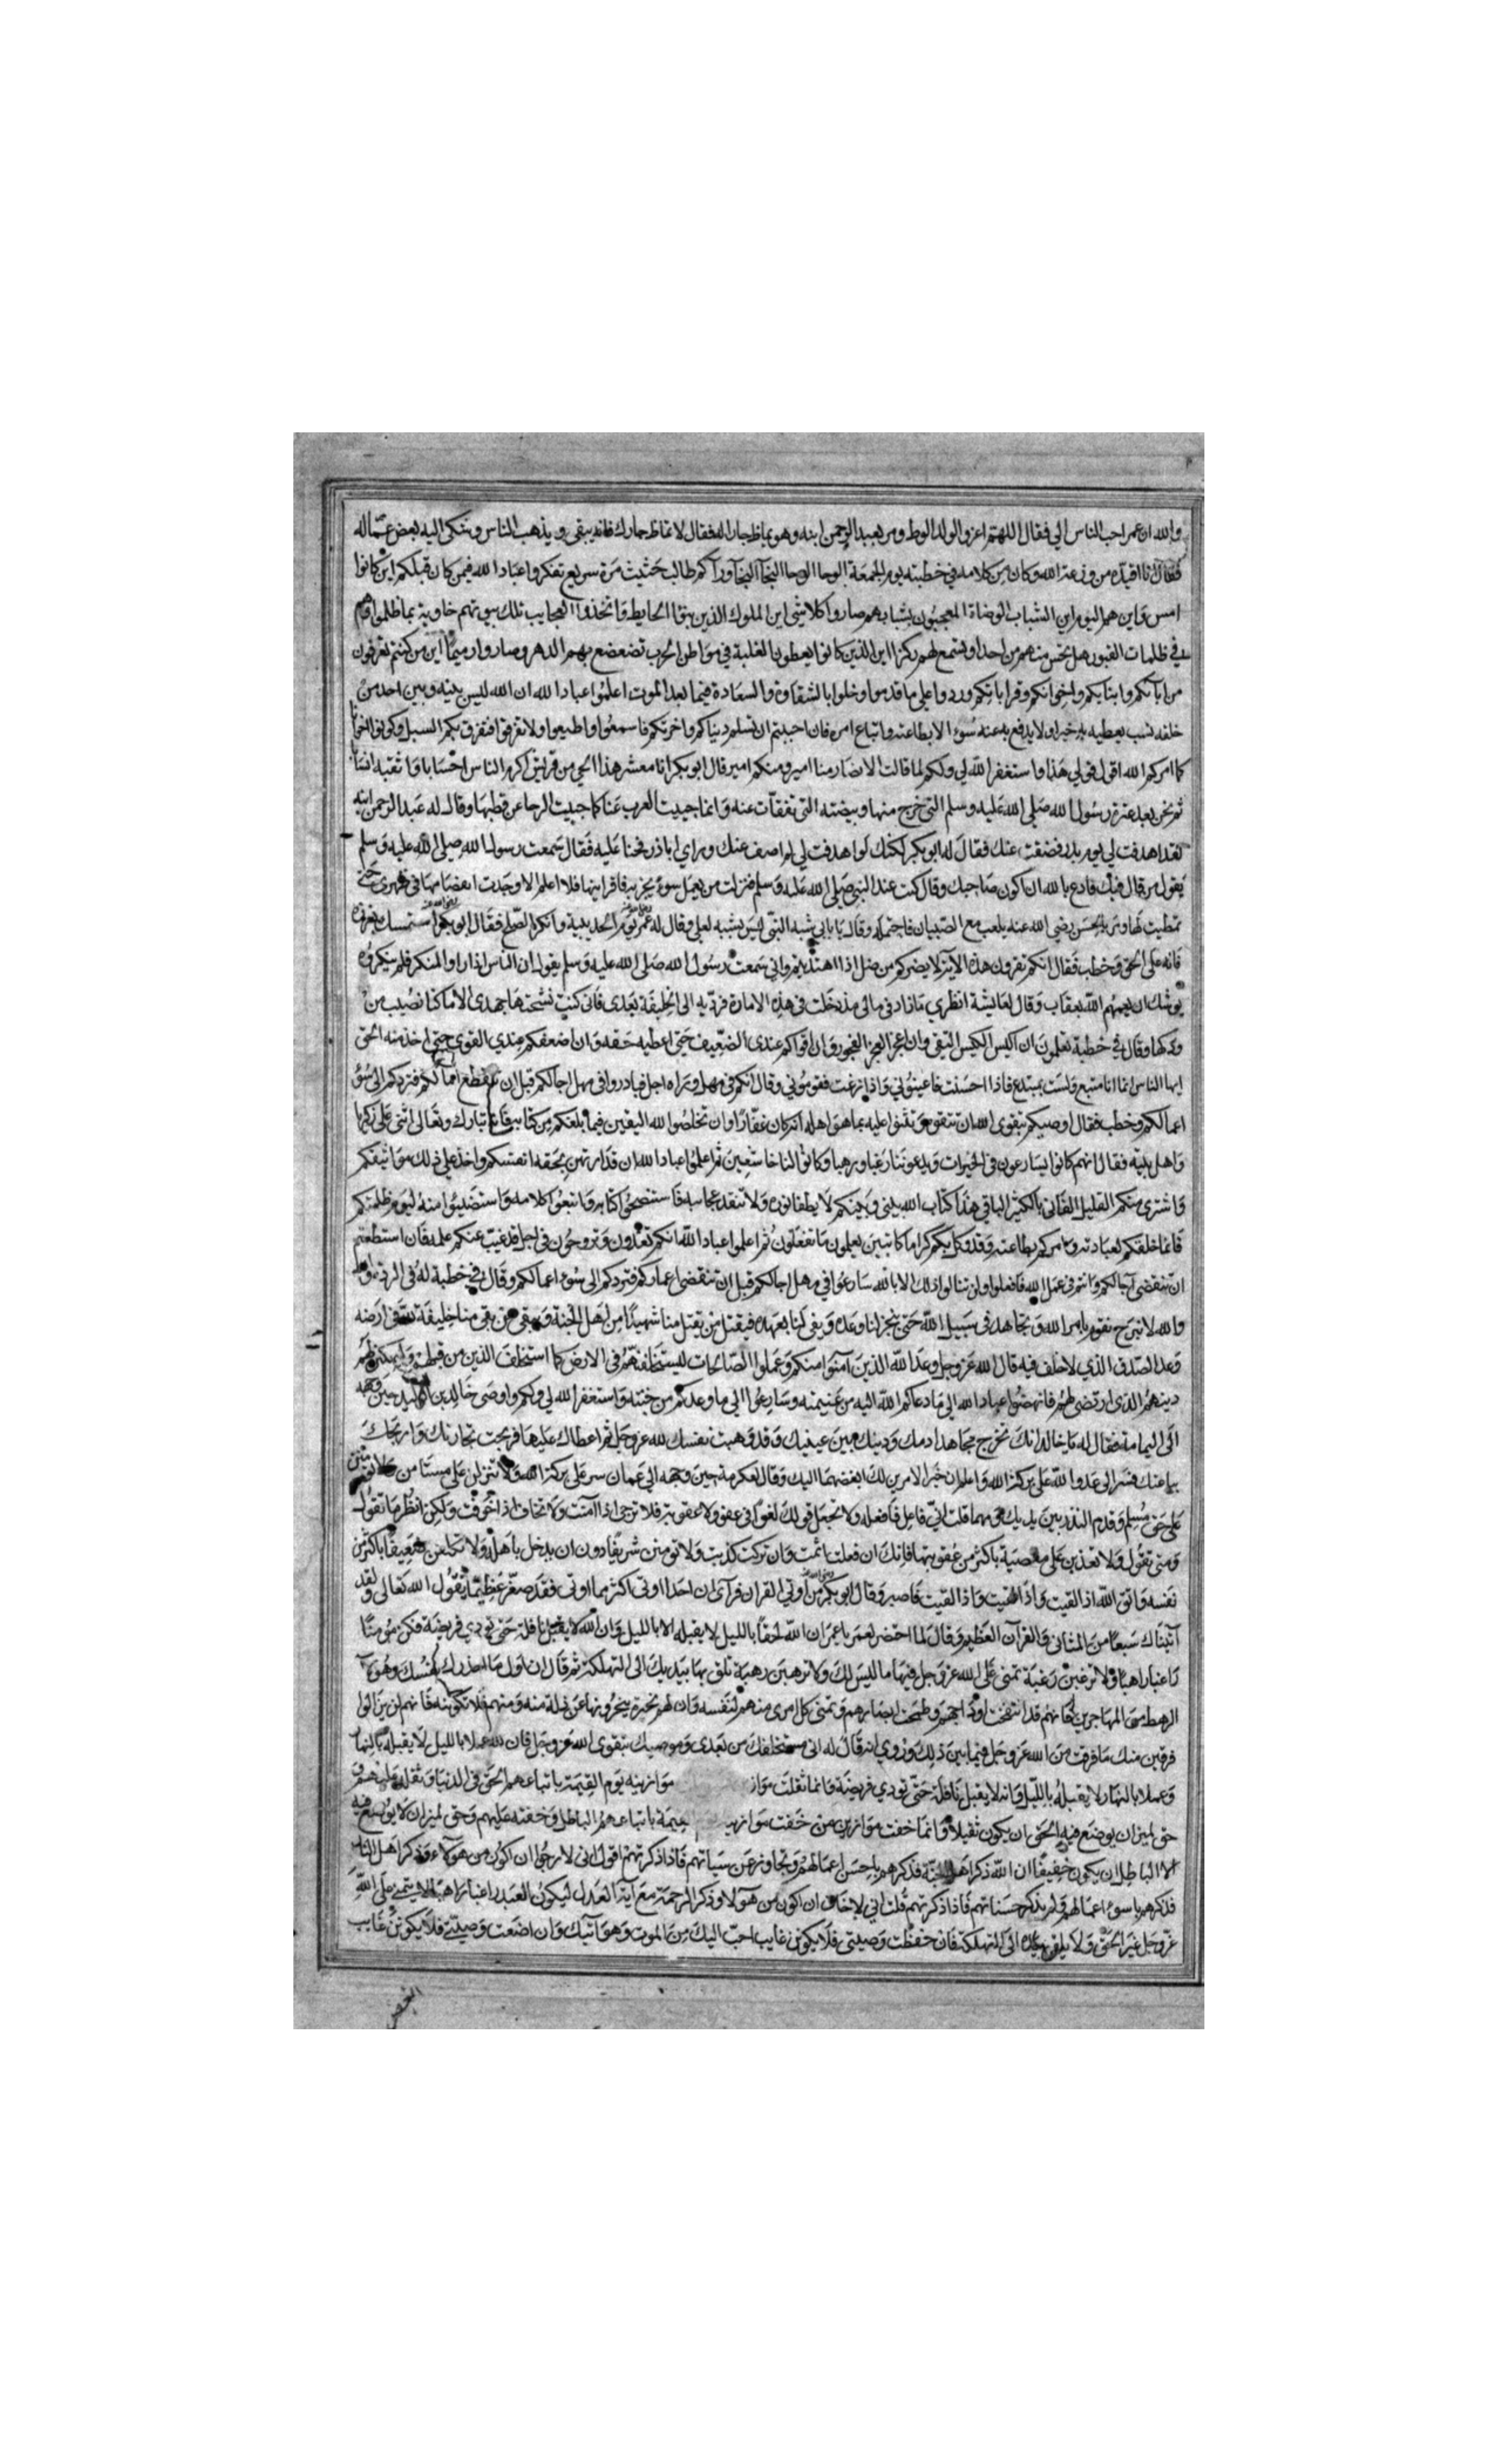 والله ان عمر احب الناس الي فقال اللهتم اعز والولد الوط ومر بعبد الرحمن ابنه وهو يماظ جارا له فقال لا تماظ جارك فانه يبقى ويذهب الناس وشكى اليه بعض عماله
فقال انا اقيد من وزعة الله وكان من كلامه في خطبته يوم الجمعة الوحا الوحا النجآ النجآ ورآكم طالب حثيث مرة سريع تفكروا عباد الله فيمن كان قبلكم اين كانوا
امس واين هم اليوم اين الشباب الوضاة المعجبون بشبابهم صاروا كلا شي اين الملوك الذين بنوا الحايط واتخذوا العجايب تلك بيوتهم خاوية بما ظلموا وهم
في ظلمات القبور هل تحس منهم من احد او تسمع لهم ركزا اين الذين كانوا يعطون الغلبة في مواطن الحرب تضعضع بهم الدهر وصاروا رميما اين من كنتم تعرفون
من ابآئكم وابنايكم واخوانكم وقراباتكم وردوا على ما قدموا وخلوا بالشقاوة والسعادة فيما بعد الموت اعلموا عباد الله ان الله ليس بينه وبين احد من
خلقه نسب يعطيه به خيرا ولا يدفع به عنه سوء الا بطاعته واتباع امره فان احببتم ان تسلم دنياكم واخرتكم فاسمعوا واطيعوا ولا تفرقوا فتفرق بكم السبل وكونوا اخوانا
كما امركم الله اقول قولي هذا واستغفر الله لي ولكم لما قالت الانصار منا امير ومنكم امير قال ابو بكر انا معشر هذا الحي من قريش اكرم الناس احسابا واثقبه انسابا
ثم نحن بعد عترة رسول الله صلى الله عليه وسلم التي خرج منها وبيضته التي تفقآت عنه وانما جيبت العرب عنا كما جيبت الرحا عن قطبها وقال له عبد الرحمن ابنه
لقد اهدفت لي يوم بدر فضفت عنك فقال له ابو بكر لكنك لو اهدفت لي لم اصف عنك وراي اباذر فحنا عليه فقال سمعت رسول الله صلى الله عليه وسلم
يقول من قال فيك فادع بالله ان اكون صاحبك وقال كنت عند النبي صلى الله عليه وسلم فنزلت من يعمل سوء يجز به فاقراينها فلا اعلم الا وجدت انفصاما في ظهري حتى
تمطيت لها ومر بالحسن رضي الله عنه يلعب مع الصبيان فاحتمله وقال يا بابي شبه النبي ليس يشبه لعلي وقال له عمر يوم الحديبية وانكر الصلح فقال ابو بكر استمسك بغرزه
فانه على الحق وخطب فقال انكم تقرون هذه الآية لا يضركم من ضل اذا اهتديتم واني سمعت رسول الله صلى الله عليه وسلم يقول ان الناس اذا راوا المنكر فلم ينكروه
يوشك ان يعمهم الله بعقاب وقال لعايشة انظري ما زاد في مالي مذ دخلت في هذه الامارة فرديه الى الخليفة بعدي فاني كنت نشحتها جهدي الا ما كنا نصيب من
ودكها وقال في خطبة تعلمون ان اكيس الكيس التقى وان اعجز العجز الفجور وان اقواكم عندي الضعيف حتى اعطيه حقه وان اضعفكم عندي القوي حتى اخذ منه الحق
ايها الناس انما انا متبع ولست بمبتدع فاذا احسنت فاعينوني واذا زغت فقوموني وقال انكم في مهل وراه اجل فبادروا في مهل اجالكم قبل ان تنقطع امالكم فتردكم الى سوء
اعمالكم وخطب فقال اوصيكم بتقوى الله ان تتقوه وتثنوا عليه بما هو اهله انه كان غفارا وان تخلصوا لله اليقين فيما بلغكم من كتابه فانه تبارك وتعالى اثنى على زكريا
واهل بيته فقال انهم كانوا يسارعون في الخيرات ويدعوننا رغبا ورهبا وكانوا لنا خاشعين ثم اعلموا عباد الله ان قد ارتهن بحقه انفسكم واخذ على ذلك مواثيقكم
واشترى منكم القليل الفاني بالكثير الباقي هذا كتاب الله بيني وبينكم لا يطفا نوره ولا تنفد عجايبه فاستنصحوا كتابه واتبعوا كلامه واستضيئوا منه ليوم ظلمتكم
فانما خلقكم لعبادته وامركم بطاعته وقد وكل بكم كراما كاتبين يعلمون ما تفعلون ثم اعلموا عباد الله انكم تغدون وتروحون في اجل قد غيب عنكم علمه فان استطعتم
ان تنقضي اجالكم وانتم في عمل الله فافعلوا ولن تنالوا ذلك الا بالله سارعوا في مهل اجالكم قبل ان تنقضي اعماركم فتردكم الى سوء اعمالكم وقال في خطبة له في الردة
والله لا نبرح نقوم بامر الله ونجاهد في سبيل الله حتى ينجز لنا وعده ويفي لنا بعهده فيقتل من يقتل منا شهيدا من اهل الجنة ويبقى من بقي منا خليفة في ارضه
وعد الصدق الذي لا خلف فيه قال الله عز وجل وعد الله الذين آمنوا منكم وعملوا الصالحات ليستخلفنهم في الارض كما استخلف الذين من قبلهم وليمكنن لهم
دينهم الذي ارتضى لهم فانهضوا عباد الله الى ما دعاكم الله اليه من غنيمته وسارعوا الى ما وعدكم من جنته واستغفر الله لي ولكم واوصى خالد بن الوليد حين وجهه
الى اليمامة فقال له يا خالد انك تخرج مجاهدا دمك ودينك بين عينيك وقد وهبت نفسك لله عز وجل ثم اعطاك عليها فربحت تجارتك وامر بحاك
بياعتك فسر الى عدو الله على بركة الله واعلم ان خير الامرين لك ابغضهما اليك وقال لعكرمة حين وجهه الى عمان سر على بركة الله ولا تنزلن على مستامن ولا تومنن
على حق مسلم وقدم النذر بين يديك ومهما قلت اني فاعل فافعله ولا تجعل قولك لغوا في عفو ولا عقوبة فلا ترجى اذا آمنت ولا تخاف اذا خوفت ولكن انظر ما تقول
ومتى تقول ولا تعذبن على معصية باكثر من عقوبتها فانك ان فعلت اثمت وان تركت كذبت ولا تومنن شريفا دون ان يدخل باهله ولا تكلفن ضعيفا باكثر من
نفسه واتق الله اذا لقيت واذا لقيت فاصبر وقال ابو بكر من اوتي القران فرآى ان احدا اوتي اكثر مما اوتي فقد صغر عظيما يقول الله تعالى ولقد
آتيناك سبعا من المثاني والقرآن العظيم وقال لما احتضر لعمر يا عمر ان الله لحقا بالليل لا يقبله الا بالليل وان الله لا يقبل نافلة حتى تودى فريضة فكن مؤمنا
راغبا راهبا ولا ترغبن رغبة تمنى على الله عز وجل فيها ما ليس لك ولا ترهبن رهبة تلق بها بيديك الى التهلكة ثم قال ان اول ما احذرك نفسك وهولاء
الرهط من المهاجرين فانهم قد انتفخت اوداجهم وطمحت ابصارهم وتمنى كل امرئ منهم لنفسه وان لهم نخيرة ينخرونها عن زلة منه ومنهم فلا تكونه فانهم لن يزالوا
فرقين منك ما فرقت من الله عز وجل فيما بين ذلك وروي انه قال له اني مستخلفك من بعدي وموصيك بتقوى الله عز وجل فان لله عملا بالليل لا يقبله بالنهار
وعملا بالنهار لا يقبله بالليل وانه لا يقبل نافلة حتى تودى فريضة وانما ثقلت مواز موازينه يوم القيمة باتباعهم الحق في الدنيا وثقله عليهم
حق لميزان يوضع فيه الحق ان يكون ثقيلا وانما خفت موازين من خفت موازينه القيمة باتباعهم الباطل وخفته عليهم وحق لميزان لا يوضع فيه
الا الباطل ان يكون خفيفا ان الله ذكر اهل الجنة فذكرهم باحسن اعمالهم وتجاوز عن سيآتهم فاذا ذكرتهم اقول اني لارجو ان اكون من هؤلاء وذكر اهل النار
فذكرهم باسوء اعمالهم ولم يذكر حسناتهم فاذا ذكرتهم قلت اني لاخاف ان اكون من هؤلا وذكر الرحمة مع آية العدل ليكون العبد راغبا راهبا لا يتمنى على الله
عز وجل غير الحق ولا يلقي بيده الى التهلكة فان حفظت وصيتي فلا يكونن غايب احب اليك من الموت وهو آتيك وان اضعت وصيتي فلا يكونن غايب
ابغض